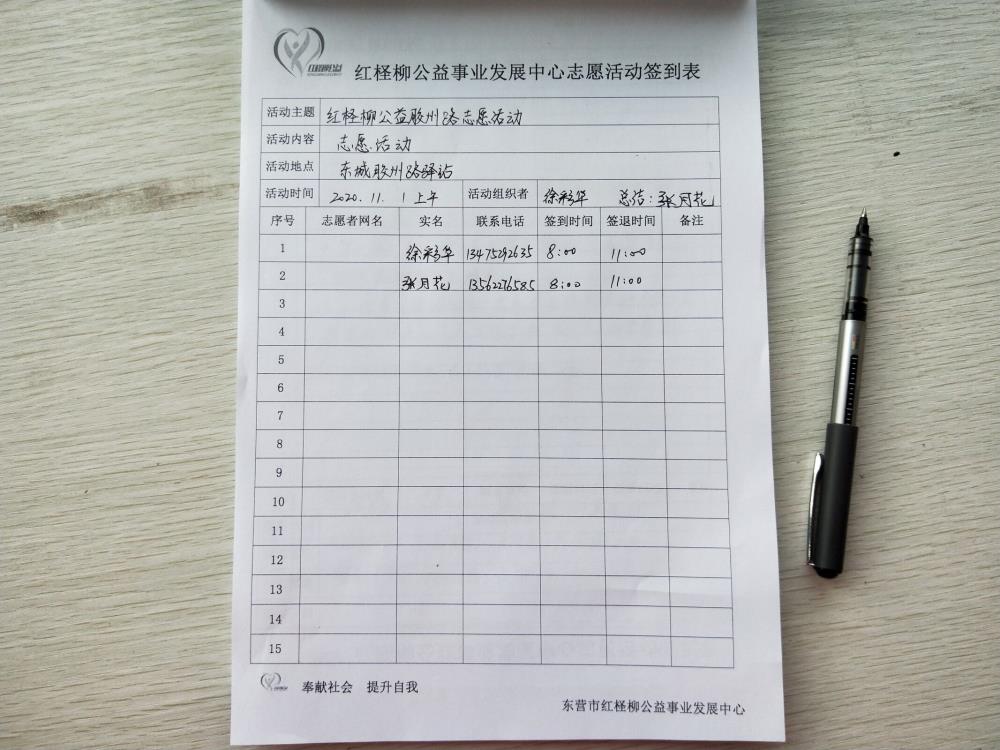 红柽柳公益
红柽柳公益事业发展中心志愿活动签到表
活动主题 红柽柳公益胶州路志愿活动
活动内容 志愿活动
活动地点 东城胶州路驿站
活动时间 2020.11.1上午 活动组织者 徐彩华 总结:张月花
序号 志愿者网名 实名 联系电话 签到时间 签退时间 备注
1 徐彩华 13475292635 8:00 11:00
2 张月花 13562276585 8:00 11:00
3
4
5
6
7
8
9
10
11
12
13
14
15
奉献社会 提升自我
东营市红柽柳公益事业发展中心